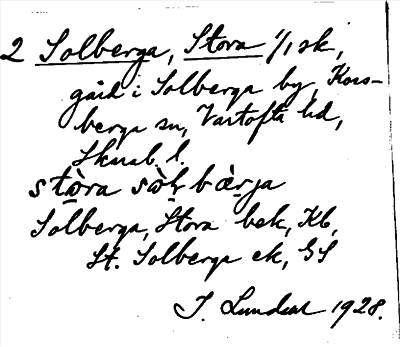 2 Solberga, Stora 1/1 sk,
gård i Solberga by, Kors-
berga sn, Vartofta hd,
Skarab. l.
stòra sòḷbæ̀rja
Solberga, Stora bek, Kb,
St. Solberga ek, GS
J. Lundahl 1928.